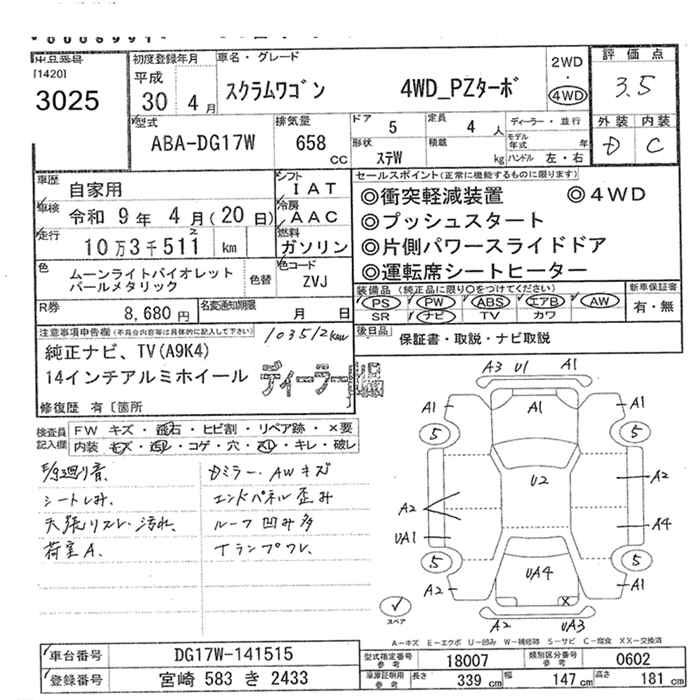 [1420]
3025
初度登録年月
平成
30 4 月
車名・グレード
スクラムワゴン 4WD_PZターボ
2WD
・
4WD
評価点
3.5
型式
ABA-DG17W
排気量
658 CC
ドア 5
定員 4 人
形状 ステW
積載 kg
ディーラー・並行
モデル年式 年
ハンドル 左・右
外装 内装
D C
車歴 自家用
車検 令和 9 年 4 月(20 日)
走行 10 万 3 千 511 km
2
シフト IAT
冷房 AAC
燃料 ガソリン
色 ムーンライトバイオレット
パールメタリック
色替
色コード ZVJ
R券 8,680 円
名変通知期限 月 日
セールスポイント(正常に機能するものに限ります)
◎衝突軽減装置 ◎4WD
◎プッシュスタート
◎片側パワースライドドア
◎運転席シートヒーター
装備品(純正品に限り○をつけてください)
PS PW ABS エアB AW
SR ナビ TV カワ
新車保証書
有・無
後日品 保証書・取説・ナビ取説
注意事項申告欄(不具合内容等は具体的に記入して下さい)
103512km
純正ナビ、TV(A9K4)
14インチアルミホイール
修復歴 有〔箇所
検査員記入欄
FW キズ・飛石・ヒビ割・リペア跡・×要
内装 キズ・汚レ・コゲ・穴・スレ・キレ・破レ
シートしみ、
天張リスレ・汚れ、
荷室A、
Dミラー・AWキズ
エンドパネル歪み
ルーフ凹み多
A3 U1 A1
A1 A1 A1
5 5
U2
A2 A2
UA1 A4
5 5
UA4
A2 X A1
A2 UA3
スペア
A-キズ E-エクボ U-凹み W-補修跡 S-サビ C-腐食 XX-交換済
車台番号 DG17W-141515
登録番号 宮崎 583 き 2433
型式指定番号 参考 18007
類別区分番号 参考 0602
車庫証明用 参考 長さ 339 cm 幅 147 cm 高さ 181 cm